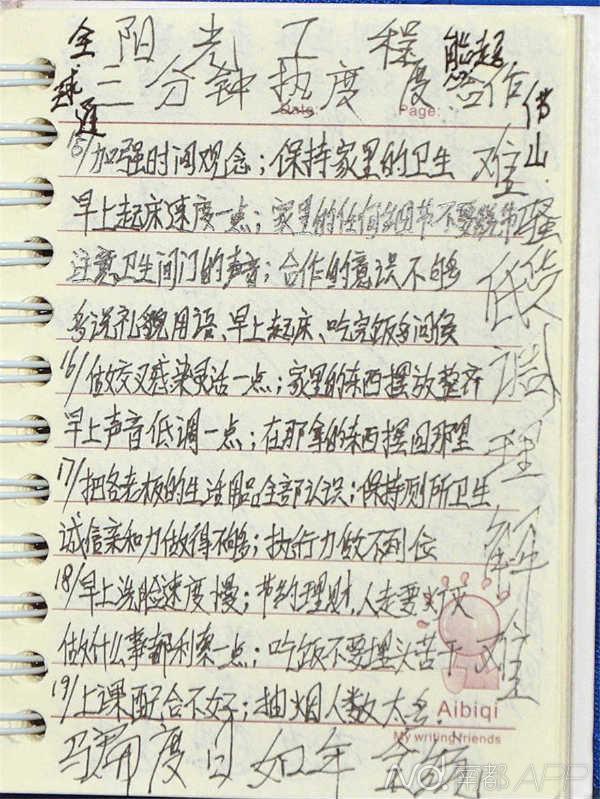 全阳光工程 能超
越 三分钟热度 度 合作 佛
通 Date: Page: 山
15/加强时间观念；保持家里的卫生 难
早上起床速度一点；家里的任何细节不要跳节
注意卫生间门的声音；合作的意识不够 低
多说礼貌用语、早上起床、吃完饭多问候
16/做交叉感染灵活一点；家里的东西摆放整齐 调
早上声音低调一点；在那拿的东西摆回那里 理
17/把各老板的生活用品全部认识；保持厕所卫生
诚信亲和力做得不够；执行力做不到位 解
18/早上洗脸速度慢；节约理财，人走要灯灭
做什么事都利索一点；吃饭不要埋头苦干 难
19/上课配合不好；抽烟人数太多.
Aibiqi
My writing friends
度日如年
N 南都APP